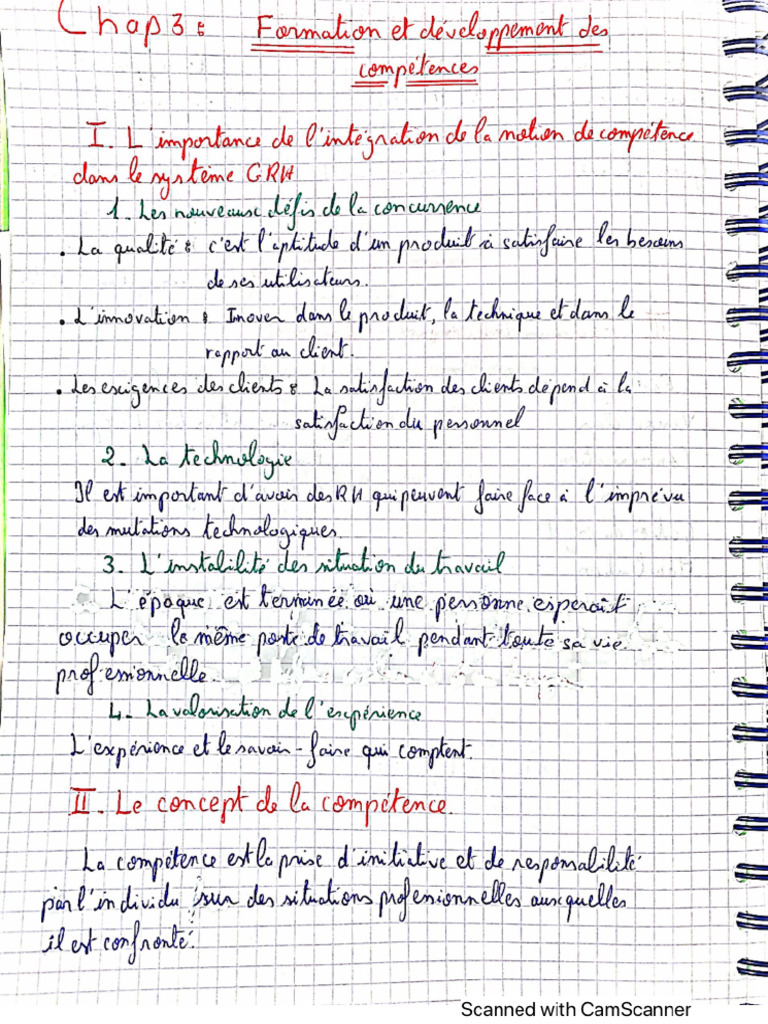 Chap 3 : Formation et développement des
compétences
I. L'importance de l'intégration de la notion de compétence
dans le système GRH
1. Les nouveaux défis de la concurrence
. La qualité : c'est l'aptitude d'un produit à satisfaire les besoins
de ses utilisateurs.
. L'innovation : Inover dans le produit, la technique et dans le
rapport au client.
. Les exigences des clients : La satisfaction des clients dépend à la
satisfaction du personnel
2. La technologie
Il est important d'avoir des RH qui peuvent faire face à l'imprévu
des mutations technologiques.
3. L'instabilité des situation du travail
L'époque est terminée où une personne esperait
occuper le même poste de travail pendant toute sa vie
professionnelle.
4. La valorisation de l'expérience
L'expérience et le savoir-faire qui comptent.
II. Le concept de la compétence.
La compétence est la prise d'initiative et de responsabilité
par l'individu sur des situations profesionnelles auxquelles
il est confronté.
Scanned with CamScanner